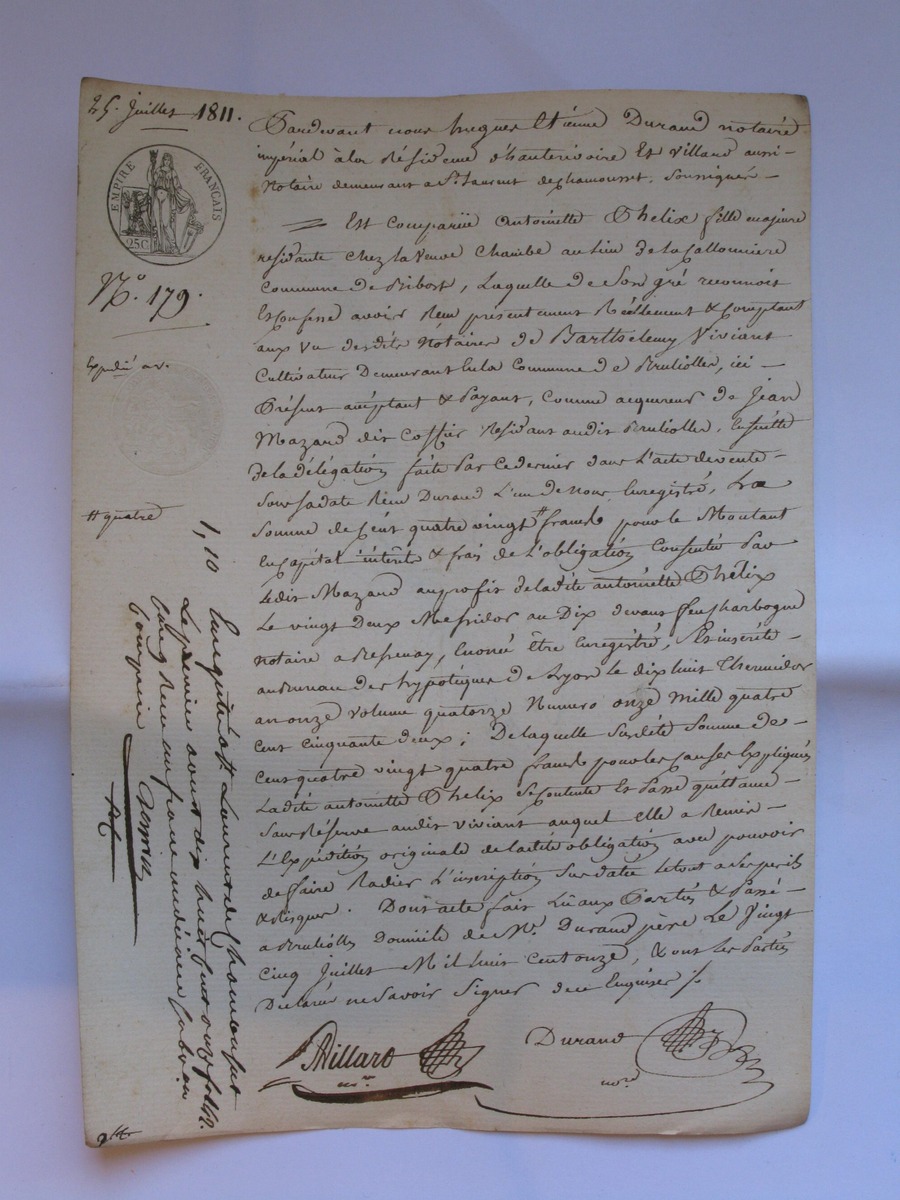 25. Juillet 1811.
EMPIRE FRANÇAIS
25C
N.º 179.
Expédié
# quatre
Pardevant nous hugues Etienne Durand notaire
impérial à la Résidence d'hauterivoire Et Villard aussi
Notaire demeurant a St. Laurent de Chamousset, Soussignés
Est Comparüe Antoinette Thelix fille majeure
residante chez la Veuve Chambe au lieu de la Callonniere
Commune de Ribost, Laquelle de Son gré reconnoit
Et Confesse avoir Reçu présentement Réellement & Comptant
aux Vu desdits Notaires de Barthelemy Viviant
Cultivateur Demeurant en la Commune de Brulliolles, ici
Présent acceptant & Payant, Comme acquereur de Jean
Mazard dit Residant audit Brulliolles, Ensuitte
de la délégation faite Par Ce dernier dans L'acte de vente
Sous Sa date Reçu Durand L'un de Nous, Enregistré, La
Somme de Cent quatre vingt # francs pour le Montant
En Capital intérêts & frais de L'obligation Consentie Par
Ledit Mazard au profit de ladite antoinette Thélix
Le vingt Deux Messidor an Dix devant feu
notaire a Bessenay, Enoncé Être Enregistré, Et inserée
au Bureau des hypotèques de Lyon le dix huit Thermidor
an onze volume quatorze Numero onze mille quatre
cent cinquante deux; De laquelle Susdite Somme de
Cent quatre vingt quatre francs pour les Causes Expliquées
Ladite antoinette Thelix Se Contente Et Passe quittance
Sans Réserve audit Viviant auquel elle a Remis
L'Expédition originale de ladite obligation avec pouvoir
de faire Radier L'inscription Susdatée Le tout a Ses perils
& Risques. Dont acte fait Lu aux Parties & Passé
a Brulliolles Domicile de Mr. Durand père Le Vingt
Cinq Juillet Mil huit Cent onze, & ont Les Parties
Declaré ne Savoir Signer de ce Enquises ./.
Villard
nre.
Durand
nore.
1,10
Enregistré à St. Laurent de Chamousset
Le premier aout dix huit cent onze folio
Reçu un franc un décime